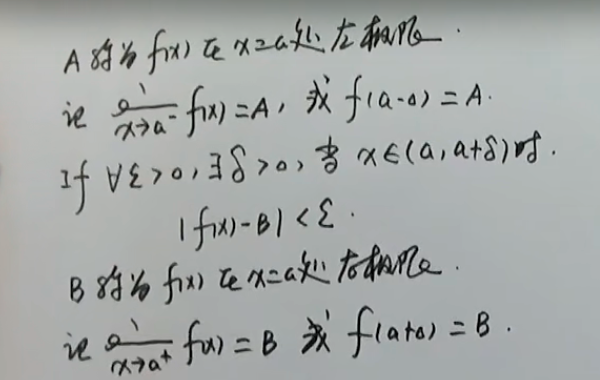 A 称为 f(x) 在 x=a处 左极限.
记 lim x→a⁻ f(x)=A, 或 f(a-0)=A.
If ∀ε>0, ∃δ>0, 当 x∈(a, a+δ)时.
|f(x)-B|<ε.
B 称为 f(x) 在 x=a处 右极限.
记 lim x→a⁺ f(x)=B 或 f(a+0)=B.